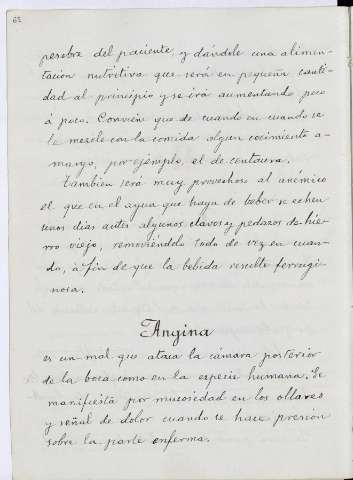 62
pesebre del paciente, y dándole una alimen-
tación nutritiva que será en pequeña canti-
dad al principio y se irá aumentando poco
á poco. Convien que de cuando en cuando se
le mezcle con la comida algun cocimiento a-
margo, por ejemplo, el de centaura.
Tambien será muy provechoso al anémico
el que en el agua que haya de beber se echen
unos dias antes algunos clavos y pedazos de hie-
rro viejo, removiéndolo todo de vez en cuan-
do, á fin de que la bebida resulte ferrugi-
nosa.
Angina
es un mal que ataca la cámara posterior
de la boca como en la especie humana. Se
manifiesta por mucosidad en los ollares
y señal de dolor cuando se hace presión
sobre la parte enferma.